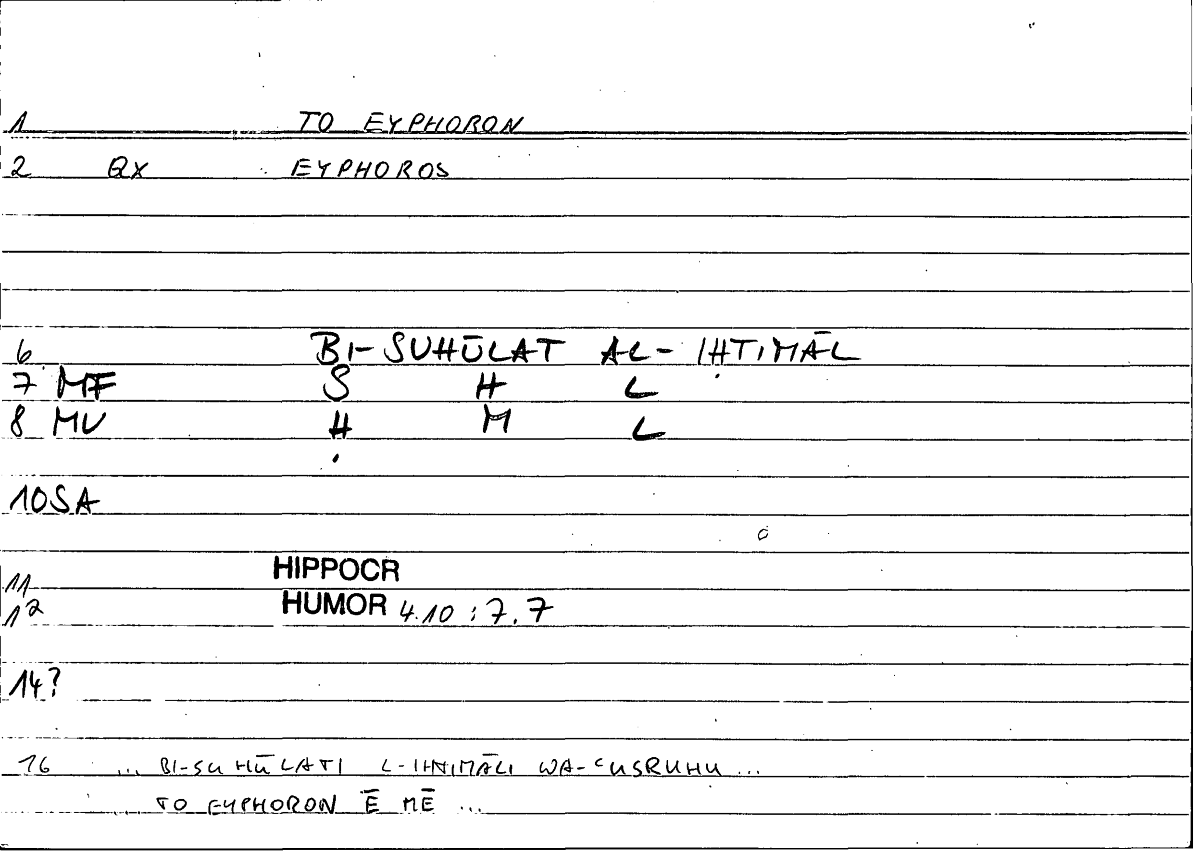 1 TO EYPHORON
2 QX EYPHOROS
6 BI-SUHŪLAT AL-IḤTIMĀL
7 MF S H L
8 MV Ḥ M L
10 SA
11 HIPPOCR
12 HUMOR 4.10 : 7.7
14?
16 ... BI-SUHŪLATI L-IHTIMĀLI WA-ʿUSRUHU ...
... TO EYPHORON Ē MĒ ...